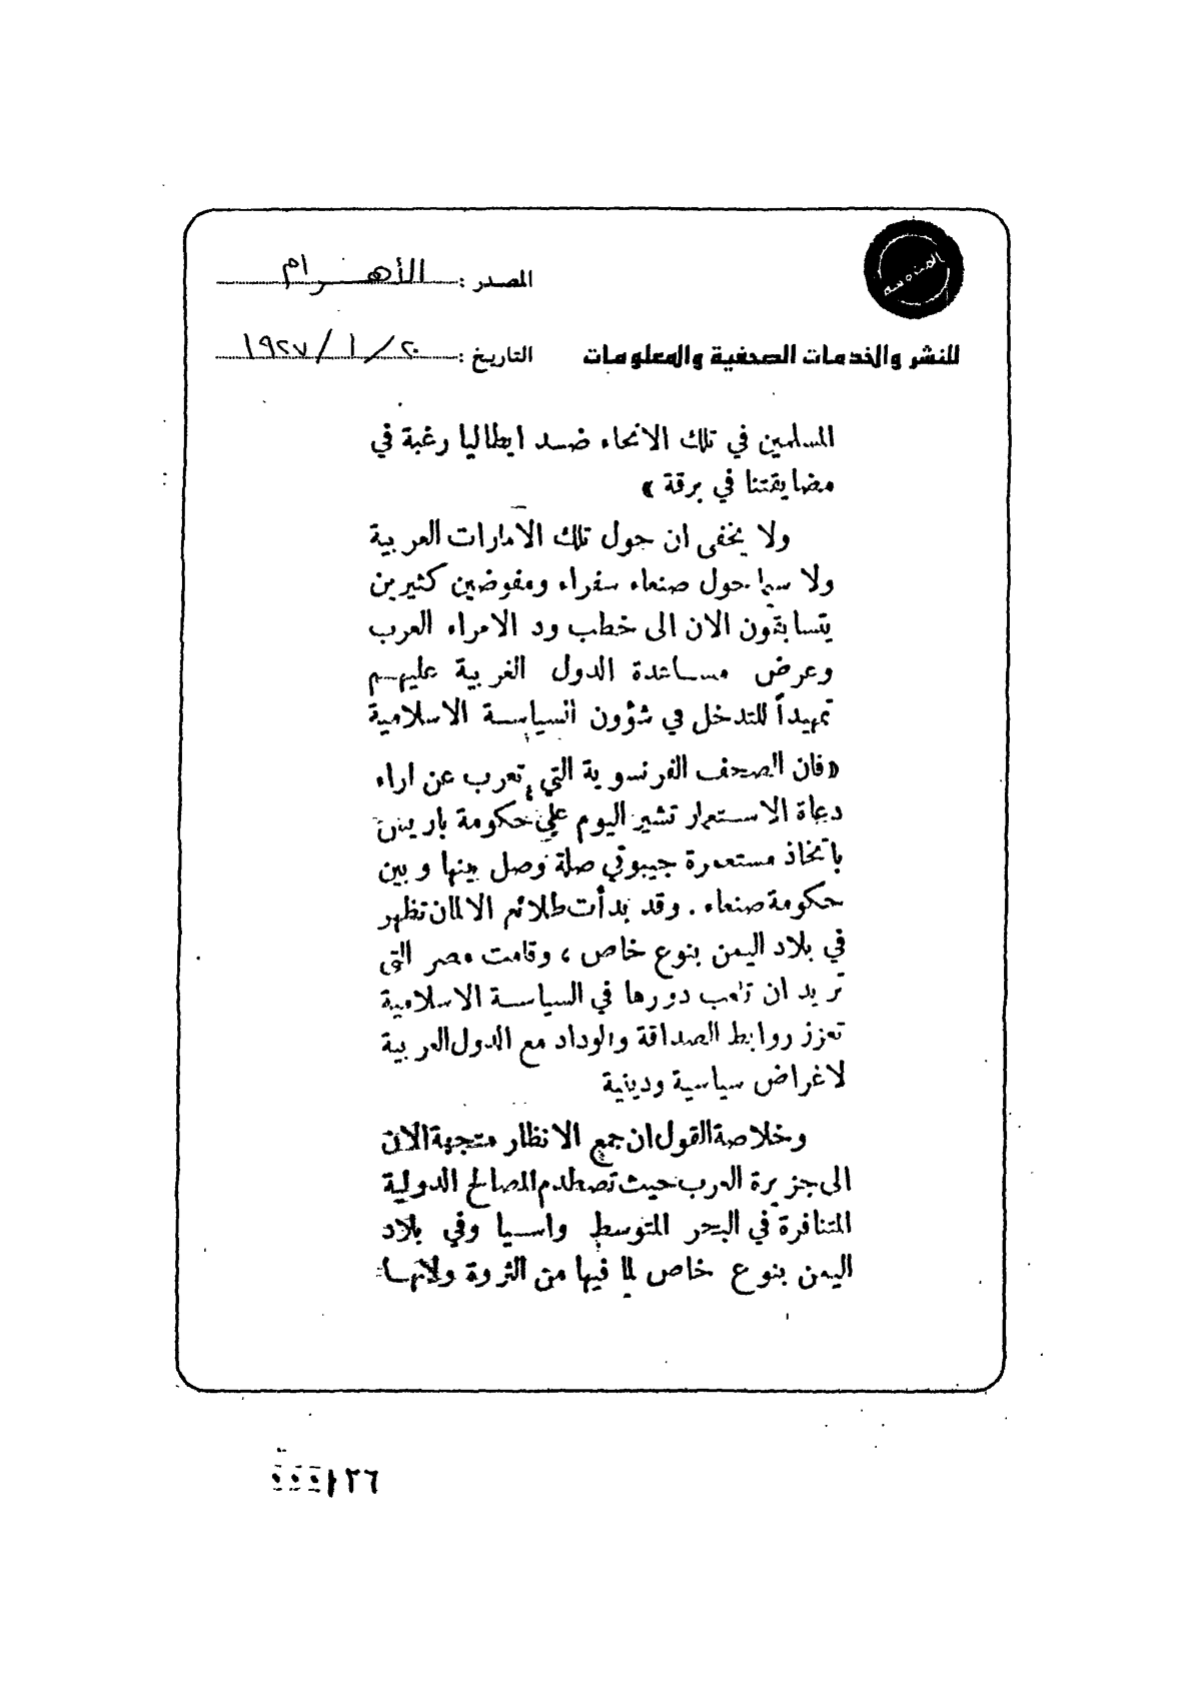 المصدر : الأهرام
للنشر والخدمات الصحفية والمعلومات
التاريخ : ٢٠ / ١ / ١٩٢٧
المسلمين في تلك الانحاء ضد ايطاليا رغبة في
مضايقتنا في برقة »
ولا يخفى ان حول تلك الامارات العربية
ولا سيما حول صنعاء سفراء ومفوضين كثيرين
يتسابقون الان الى خطب ود الامراء العرب
وعرض مساعدة الدول الغربية عليهم
تمهيداً للتدخل في شؤون السياسة الاسلامية
« فان الصحف الفرنسوية التي تعرب عن اراء
دعاة الاستعمار تشير اليوم علي حكومة باريس
باتخاذ مستعمرة جيبوتي صلة وصل بينها وبين
حكومة صنعاء . وقد بدأت طلائع الالمان تظهر
في بلاد اليمن بنوع خاص ، وقامت مصر التى
تريد ان تلعب دورها في السياسة الاسلامية
تعزز روابط الصداقة والوداد مع الدول العربية
لاغراض سياسية ودينية
وخلاصة القول ان جمع الانظار متجهة الان
الى جزيرة العرب حيث تصطدم المصالح الدولية
المتنافرة في البحر المتوسط واسيا وفي بلاد
اليمن بنوع خاص لما فيها من الثروة ولانها